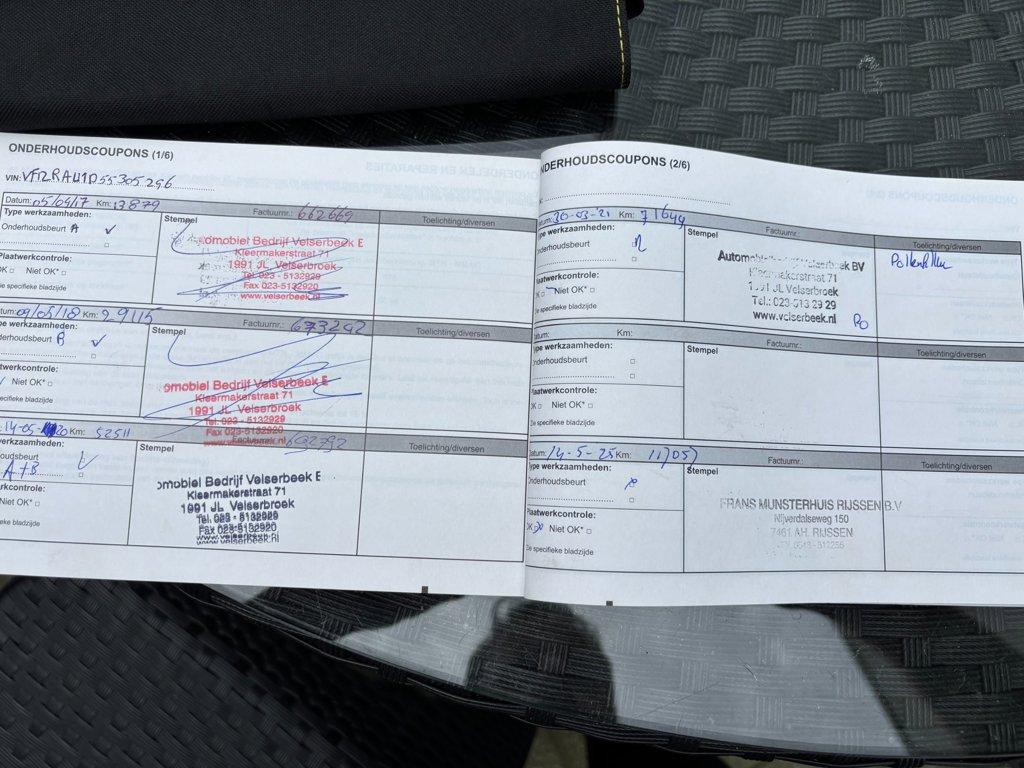 ONDERHOUDSCOUPONS (1/6)
VIN:
Datum: 05/09/17 Km: 13879
Type werkzaamheden:
Stempel
Factuurnr.: 662669
Toelichting/diversen
Onderhoudsbeurt A ✓
omobiel Bedrijf Velserbeek E
Kleermakerstraat 71
1991 JL Velserbroek
Tel. 023 - 5132929
Fax 023-5132920
www.velserbeek.nl
Plaatwerkcontrole:
OK □ Niet OK* □
De specifieke bladzijde
tum: 09/05/18 Km: 29115
Factuurnr.: 673242
Toelichting/diversen
pe werkzaamheden:
Stempel
derhoudsbeurt B ✓
omobiel Bedrijf Velserbeek E
Kleermakerstraat 71
1991 JL Velserbroek
Tel. 023 - 5132929
Fax 023-5132920
www.velserbeek.nl
atwerkcontrole:
Niet OK* □
specifieke bladzijde
14-05-20 Km: 52511
Factuurnr.: 692792
Toelichting/diversen
werkzaamheden:
Stempel
oudsbeurt
A+B
omobiel Bedrijf Velserbeek E
Kleermakerstraat 71
1991 JL Velserbroek
Tel. 023 - 5132929
Fax 023-5132920
www.velserbeek.nl
rkcontrole:
Niet OK* □
ieke bladzijde
NDERHOUDSCOUPONS (2/6)
atum: 30-03-21 Km: 71649
Factuurnr.:
Toelichting/diversen
Type werkzaamheden:
Stempel
Onderhoudsbeurt
Pollenfilter
BV
Kleermakerstraat 71
1991 JL Velserbroek
Tel.: 023-513 29 29
www.velserbeek.nl
Plaatwerkcontrole:
OK □ Niet OK* □
De specifieke bladzijde
Datum: Km:
Factuurnr.:
Toelichting/diversen
Type werkzaamheden:
Stempel
Onderhoudsbeurt □
Plaatwerkcontrole:
OK □ Niet OK* □
De specifieke bladzijde
Datum: 14-5-25 Km:
Factuurnr.:
Toelichting/diversen
Type werkzaamheden:
Stempel
Onderhoudsbeurt
FRANS MUNSTERHUIS RIJSSEN B.V
Nijverdalseweg 150
7461 AH RIJSSEN
Plaatwerkcontrole:
OK Niet OK* □
De specifieke bladzijde